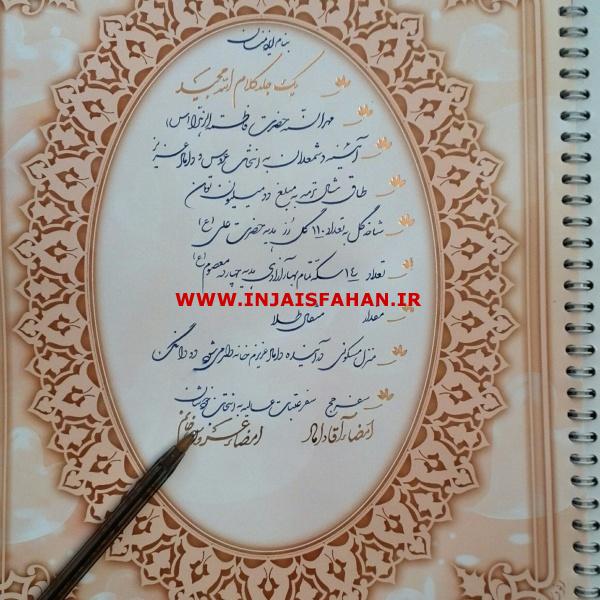 بنام
یک جلد کلام الله مجید
مهرالسنه حضرت فاطمه الزهرا (س)
آئینه و شمعدان به انتخاب عروس و داماد عزیز
طاق شال ترمه به مبلغ دو میلیون تومان
شاخه گل به تعداد ۱۱۰ گل رز هدیه حضرت علی (ع)
تعداد ۱۴ سکه تمام بهار آزادی هدیه چهارده معصوم (ع)
WWW.INJAISFAHAN.IR
مقدار مثقال طلا
منزل مسکونی در آینده داماد عزیزم خانه دار می شود دانگ
سفر حج سفر عتبات عالیه به انتخاب خودشان
امضاء آقا داماد امضاء عروس خانم